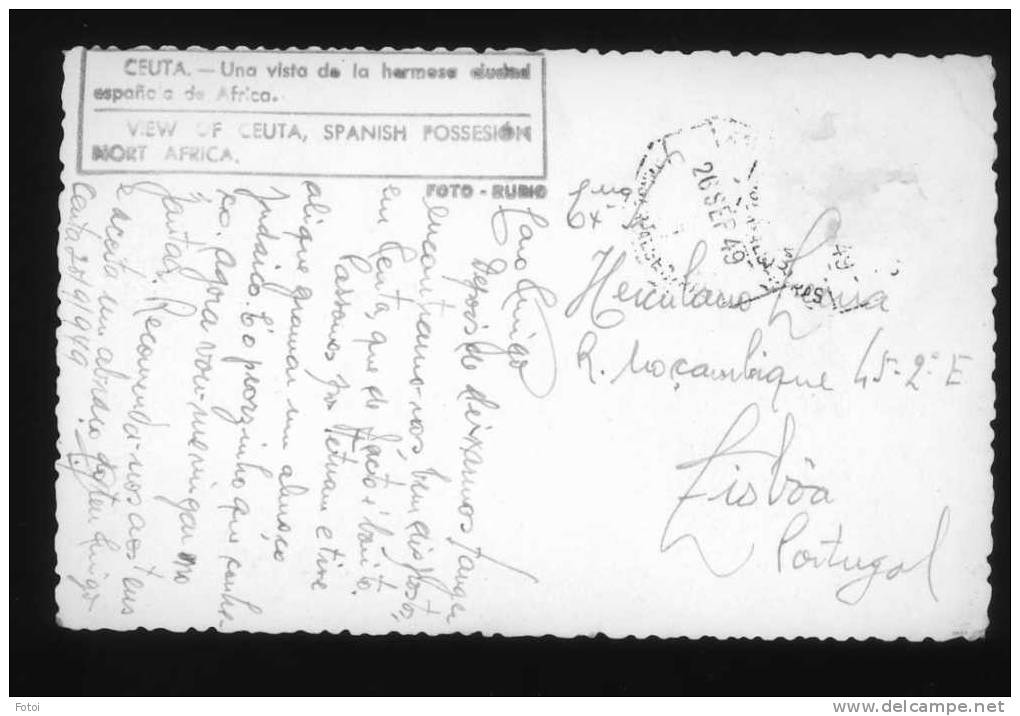 CEUTA. — Una vista de la hermosa ciudad
española de Africa.
VIEW OF CEUTA, SPANISH POSSESIÓN
NORT AFRICA.
FOTO - RUBIO
Caro Amigo
Depois de deixarmos Tanger
encontramo-nos bem dispostos,
em Ceuta, que de facto é bonito.
Passamos por Tetuam e tive
alique gramar um almoço
judaico. É o prorzinho que conhe-
ço. Agora vou-me vingar no
jantar. Recomenda-nos aos teus
e aceita um abraço do teu amigo
Ceuta 20/9/949
Exmo
Herculano Sousa
R. Moçambique 45-2º E
Lisbôa
Portugal
26 SEP 49
49
Fotoi
www.delcampe.net